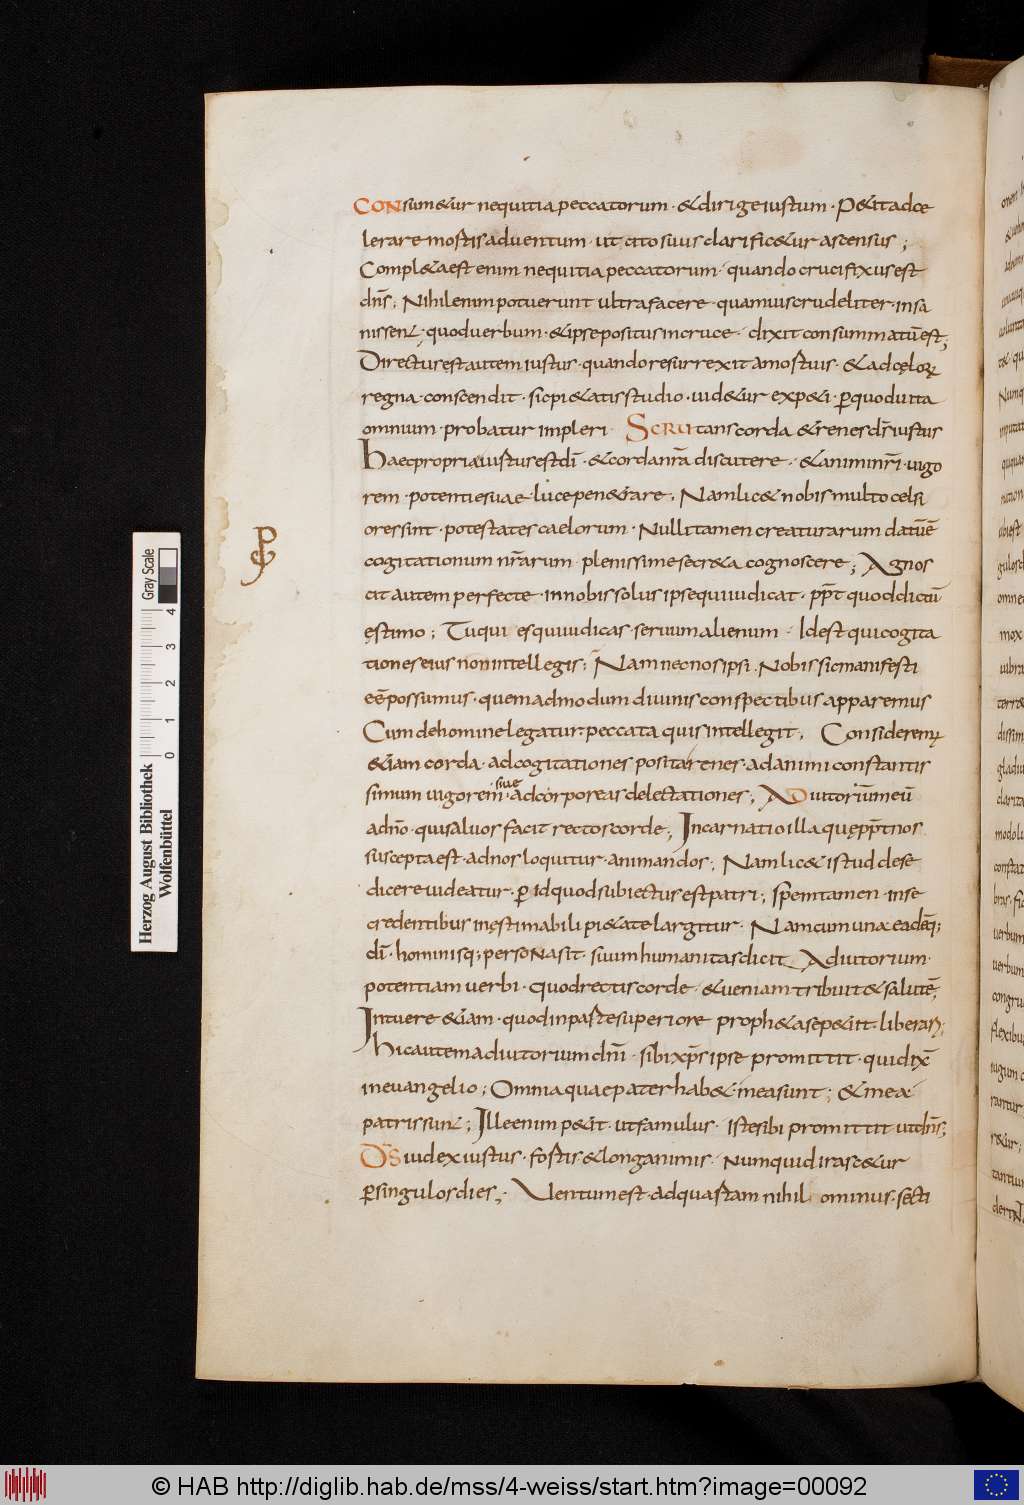 CONsum&ur nequitia peccatorum · &dirige iustum · P&it adce
lerare mortis aduentum · ut cito suus clarific&ur ascensus ;
Compl&a est enim nequitia peccatorum · quando crucifixus est
dn̄s ; Nihil enim potuerunt ultra facere · quamuis crudeliter · insa
nissent · quod uerbum · & ipse positus in cruce · dixit consummatū est ;
Directus est autem iustus · quando resurrexit a mortuis · & ad cęloꝝ
regna · conscendit · sic pi&atis studio · uid&ur exp&i · ꝑ quod uita
omnium · probatur impleri · SCRUtans corda & renes dn̄s iustus
Haec propria iustus est dī · & corda nr̄a discutere · & animi nr̄i · uigo
rem · potentiae suae luce pen&rare · Nam lic& nobis multo celsi
ores sint · potestates caelorum · Nulli tamen creaturarum datū ē
cogitationum nr̄arum · plenissime secr&a cognoscere ; Agnos
cit autem perfecte · in nobis solus ipse qui iudicat · ꝓpt̄ quod dictū
ęstimo ; Tu qui es qui iudicas · seruum alienum · Id est qui cogita
tiones eius non intellegis ; Nam nec nos ipsi · Nobis sic manifesti
eē possumus · quemadmodum diuinis conspectibus apparemus
Cum de homine legatur · peccata quis intellegit ; Consideremꝰ
&iam corda · ad cogitationes positas renes · ad animi constantis
simum uigorem · siue ad corporeas delectationes ; ADiutoriū meū
a dnō · qui saluos facit rectos corde ; Incarnatio illa quę ꝓpt̄ nos
suscepta est · ad nos loquitur · animandos ; Nam lic& istud de se
dicere uideatur · ꝑ id quod subiectus est patri ; spem tamen · in se
credentibus inęstimabili pi&ate largitur · Nam cum una eadēq;
dī · hominisq; persoNa sit · suum humanitas dicit Adiutorium ·
potentiam uerbi · Quod rectis corde · & ueniam tribuit & salutē ;
Intuere &iam · quod in parte superiore proph&a se p&iit · liberari ;
Hic autem adiutorium dn̄i · sibi xp̄s ipse promittit · qui dixē
in euangelio ; Omnia quae pater hab& · mea sunt ; & mea
patris sunt ; Ille enim p&it · ut famulus · iste sibi promittit ut dn̄s ;
DS̄ iudex iustus · fortis & longanimis · Numquid irasc&ur
ꝑ singulos dies ; Uentum est · ad quartam nihil ominus · secti
Herzog August Bibliothek
Wolfenbüttel
0 1 2 3 4
Gray Scale
© HAB http://diglib.hab.de/mss/4-weiss/start.htm?image=00092